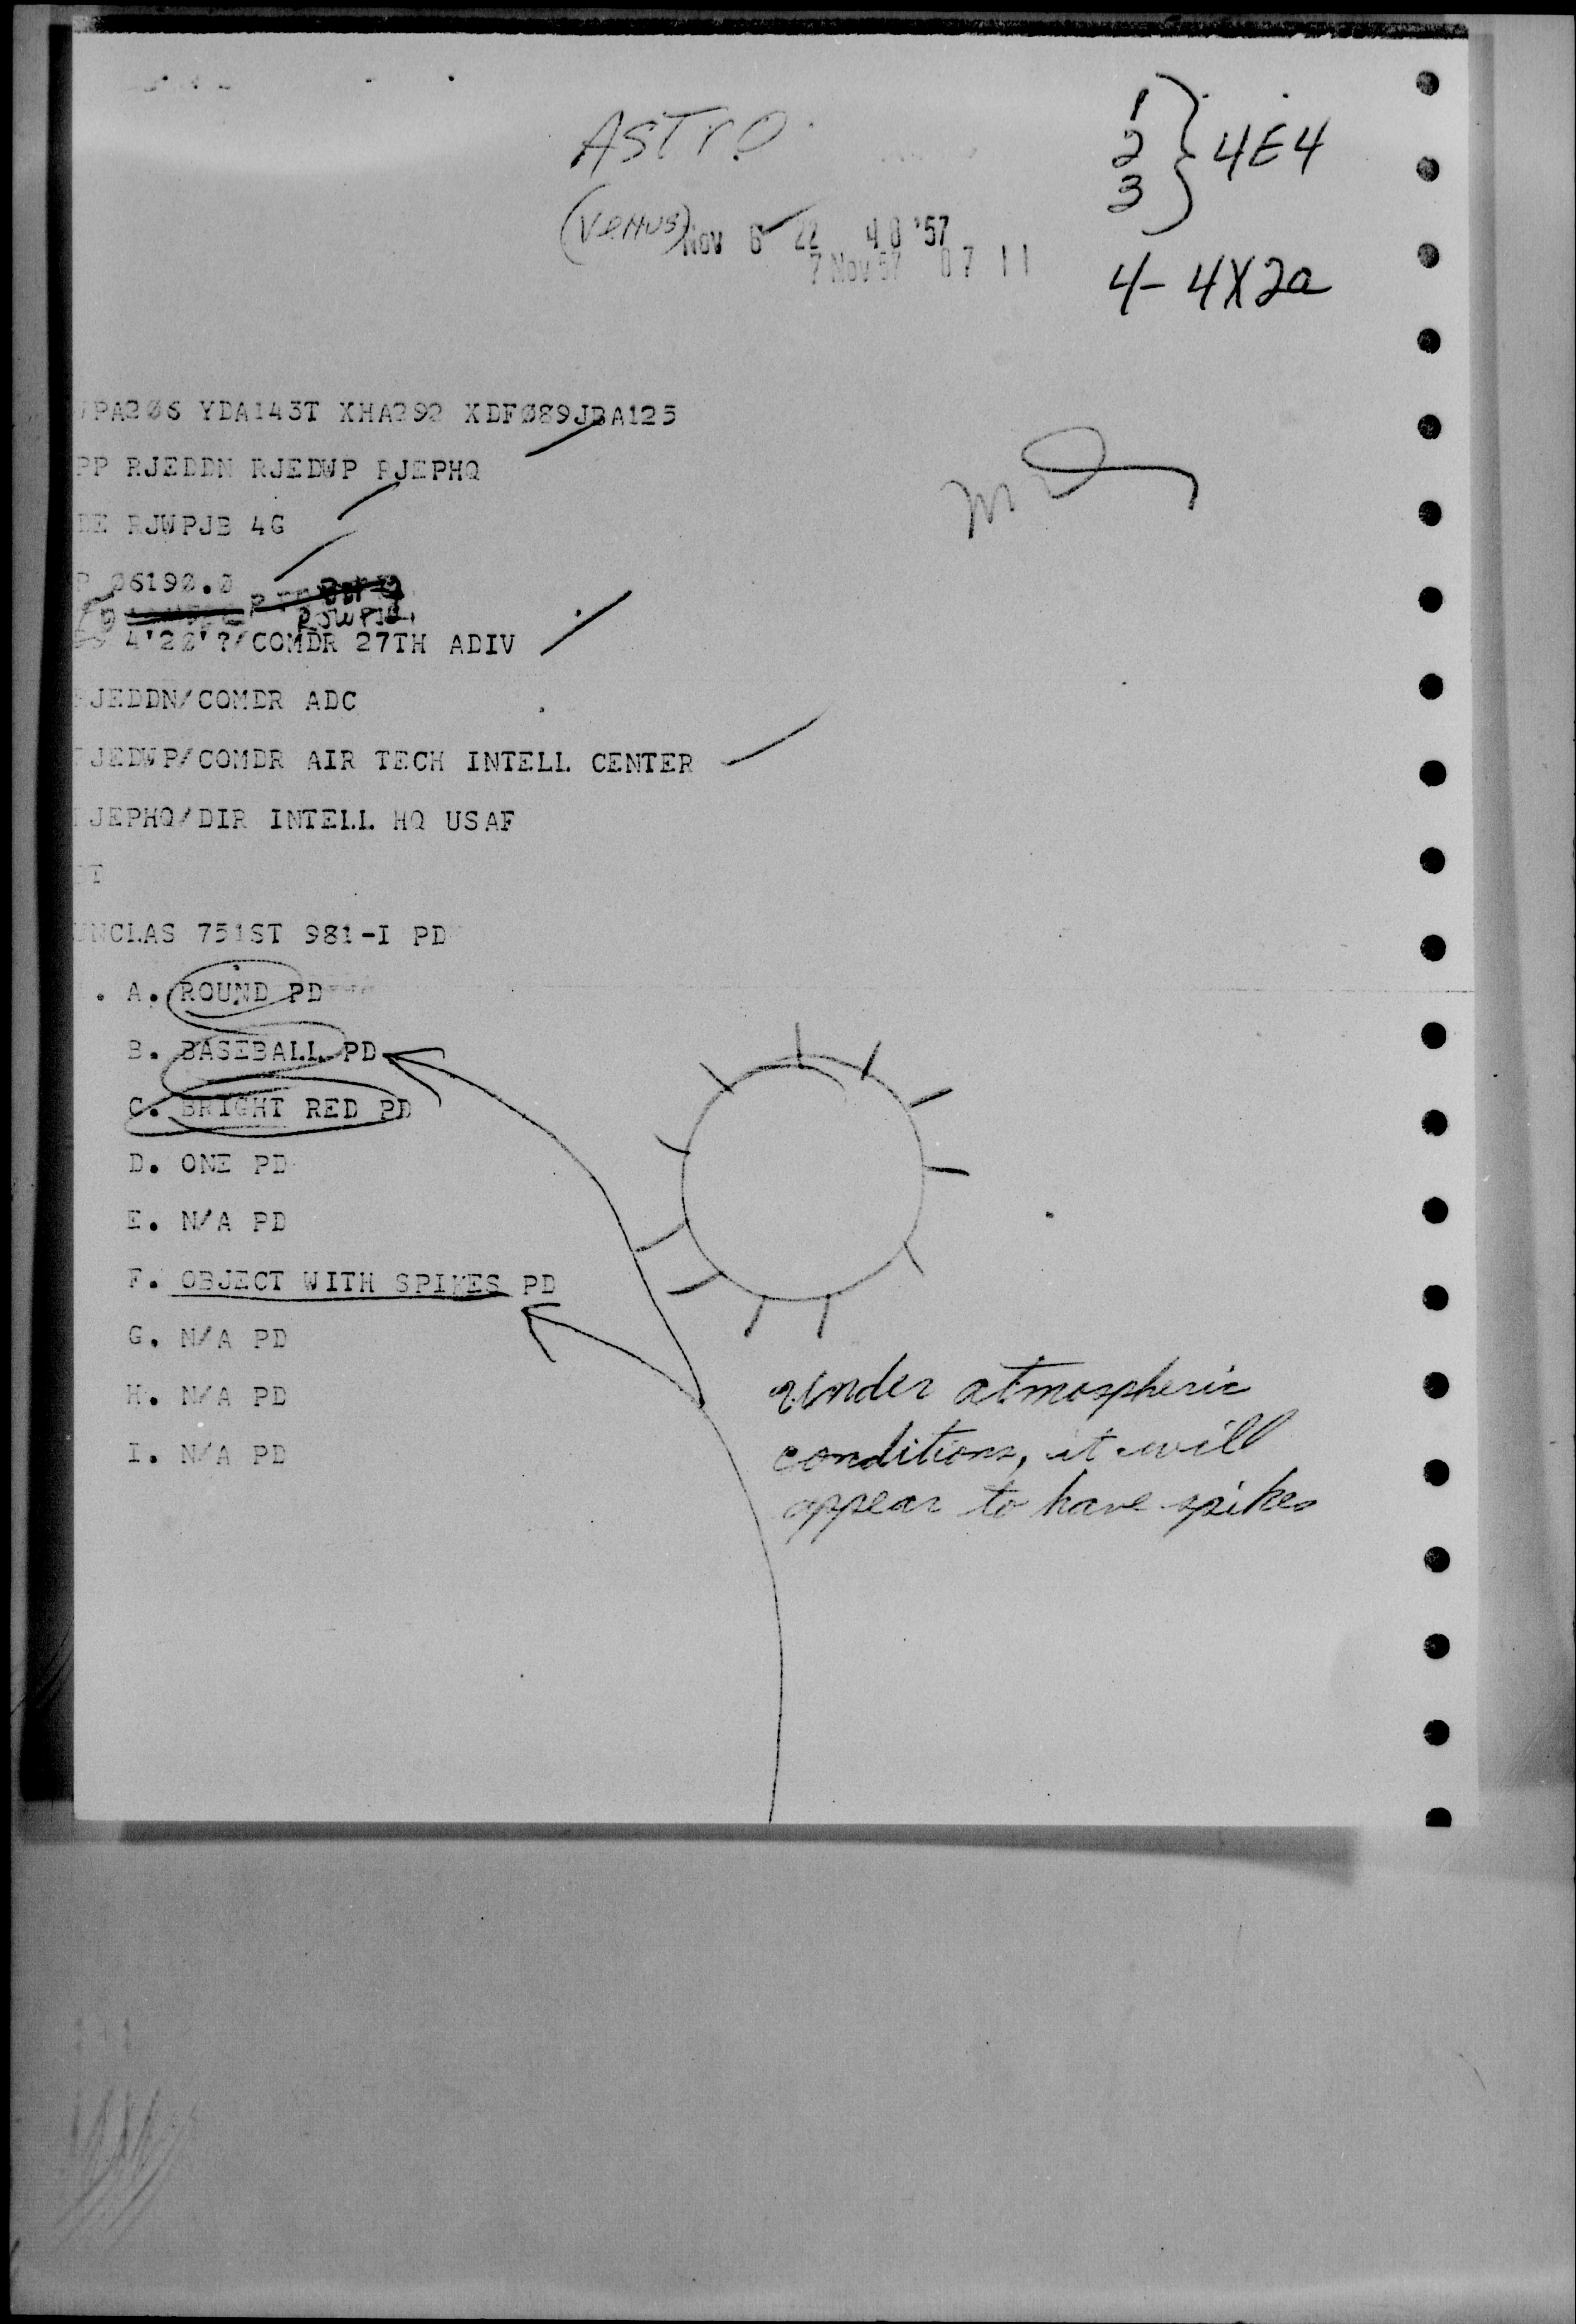 ASTRO
(VENUS)
1
2
3
} 4E4
NOV 6 22 40 '57
7 NOV 57 07 11
4- 4X2a
PA206 YDA143T XHA292 XDF089JBA125
PP RJEDDN RJEDWP RJEPHQ
DE RJWPJB 4G
P 06190.0
RJWPJB
4'20'?/COMDR 27TH ADIV
JEDDN/COMDR ADC
JEDWP/COMDR AIR TECH INTELL CENTER
JEPHQ/DIR INTELL HQ USAF
UNCLAS 751ST 981-I PD
. A. ROUND PD
B. BASEBALL PD
C. BRIGHT RED PD
D. ONE PD
E. N/A PD
F. OBJECT WITH SPIKES PD
G. N/A PD
H. N/A PD
I. N/A PD
Under atmospheric
conditions, it will
appear to have spikes